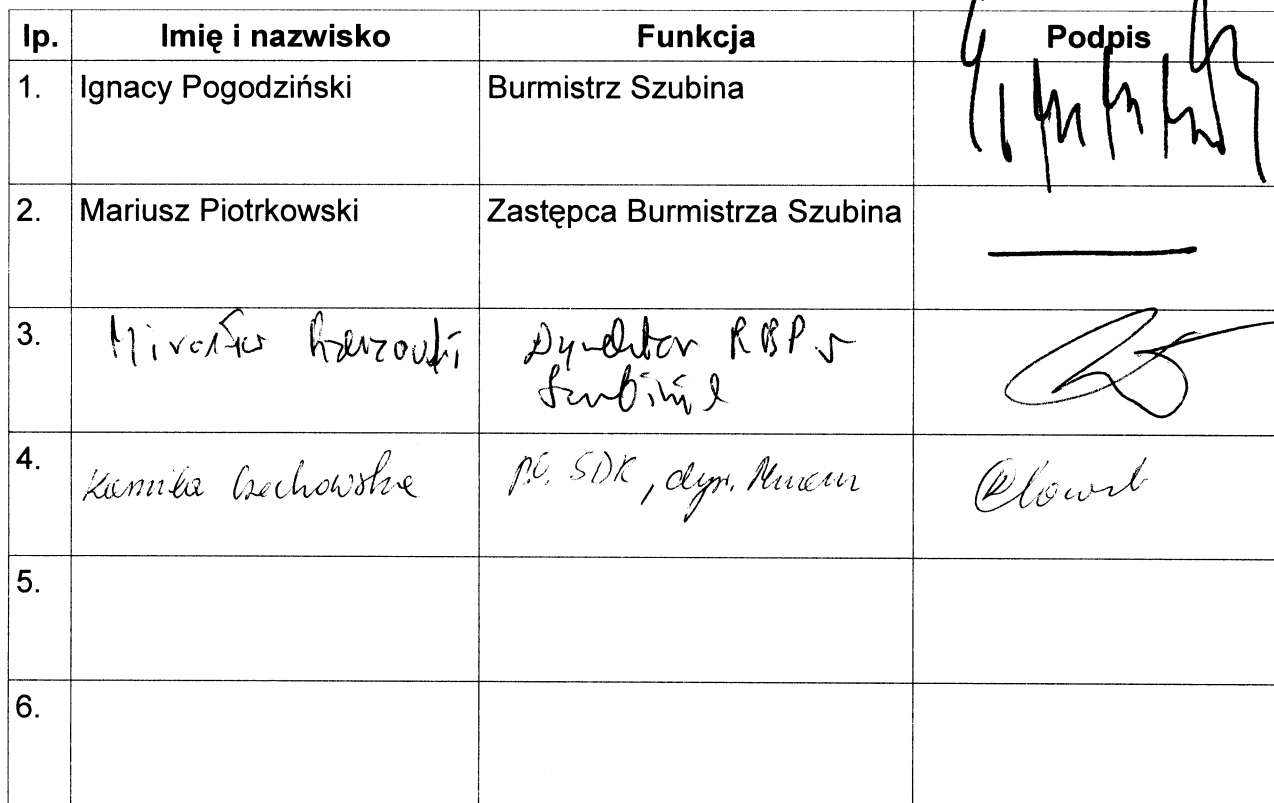 lp. Imię i nazwisko Funkcja Podpis
1. Ignacy Pogodziński Burmistrz Szubina
2. Mariusz Piotrkowski Zastępca Burmistrza Szubina
3. Mirosław Dyrektor RBP w
Szubinie
4. Kamila Czechowska p.o. SDK, dyr. Muzeum
5.
6.